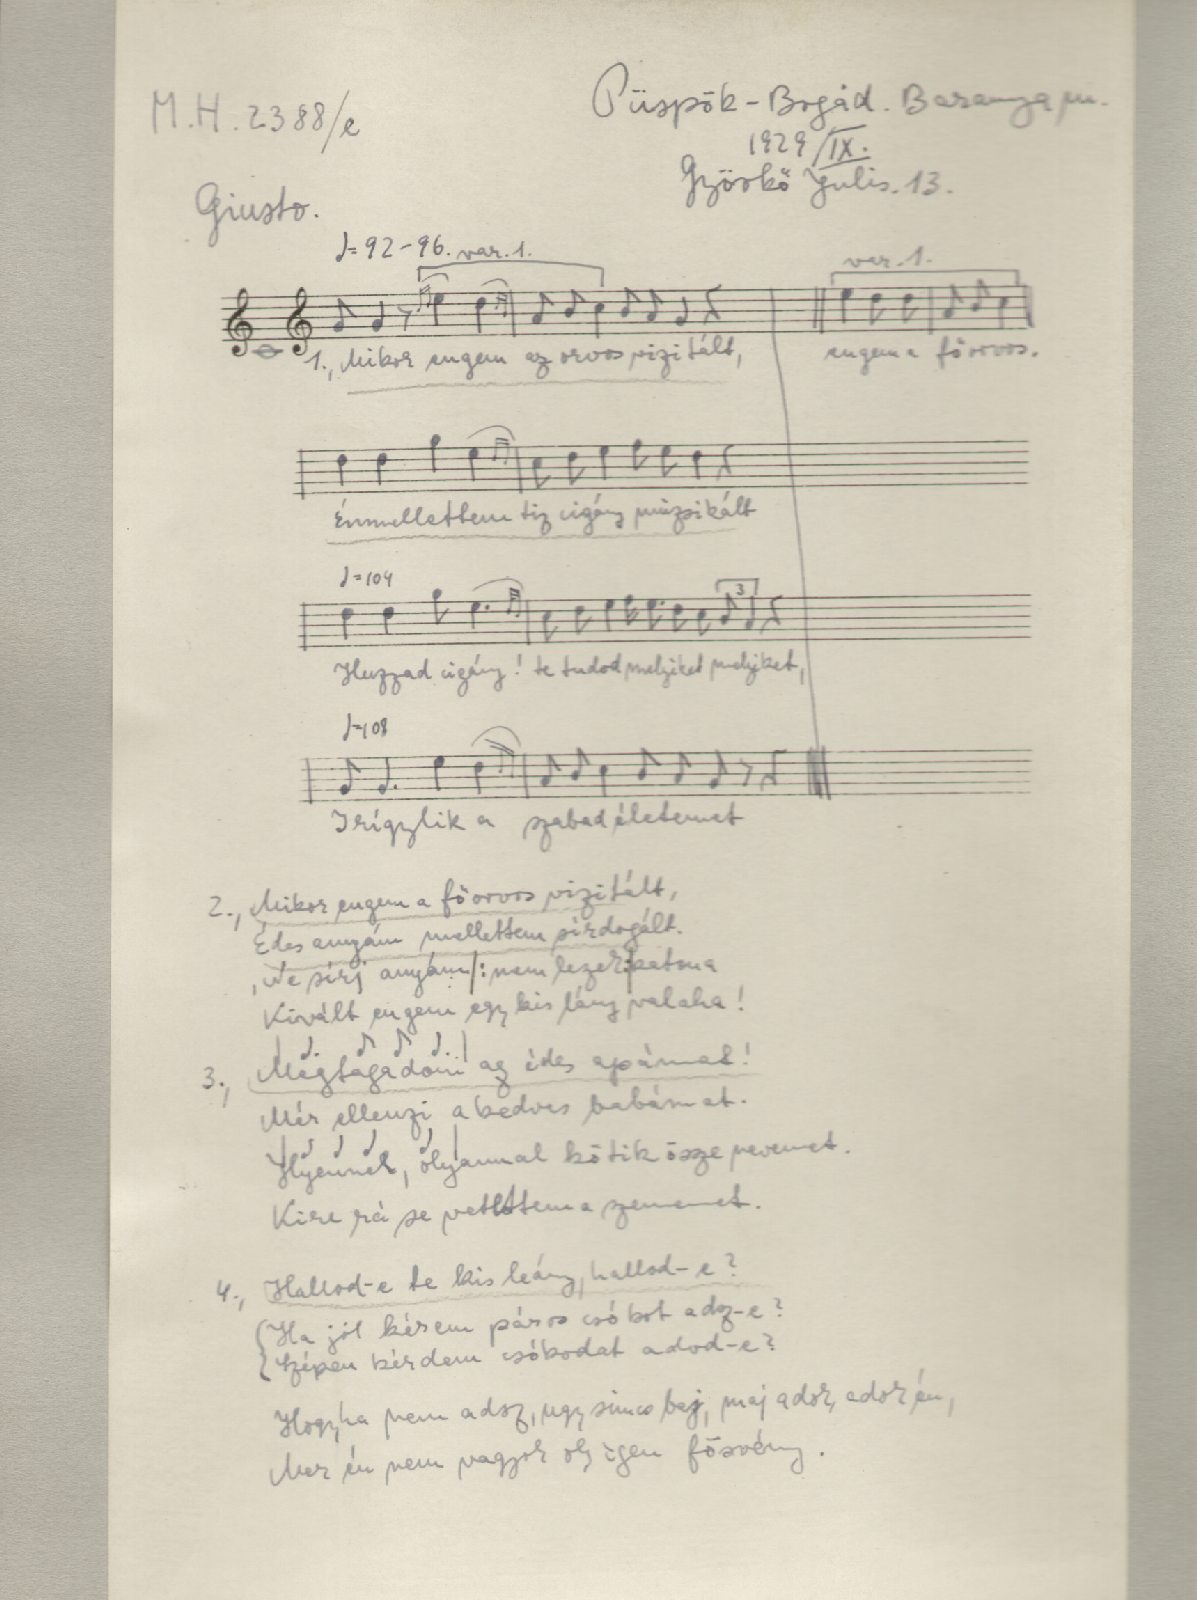 M.H. 2388/e
Püspök-Bogád. Baranya m.
1929/IX.
Györkő Julis. 13.
Giusto.
♩=92-96. var. 1.
var. 1.
1., Mikor engem az orvos vizitált,
engem a főorvos.
Énmellettem tiz cigány múzsikált
♩=104
3
Huzzad cigány! te tudod melyiket melyiket,
♩=108
Irígylik a szabad életemet
2., Mikor engem a főorvos vizitált,
Édes anyám mellettem sírdogált.
„Ne sírj anyám /: nem leszek :/ katona
Kivált engem egy kis lány valaha!
3., Megtagadom az édes apámat!
Mér ellenzi a kedves babámat.
Ilyennel, olyannal kötik össze nevemet.
Kire rá se vetettem a szememet.
4., Hallod-e te kis leány, hallod-e?
Ha jól kérem páros csókot adsz-e?
Szépen kérdem csókodat adod-e?
Hogyha nem adsz, ugy sincs baj, maj adok, adok én,
Mer én nem vagyok oly igen fösvény.